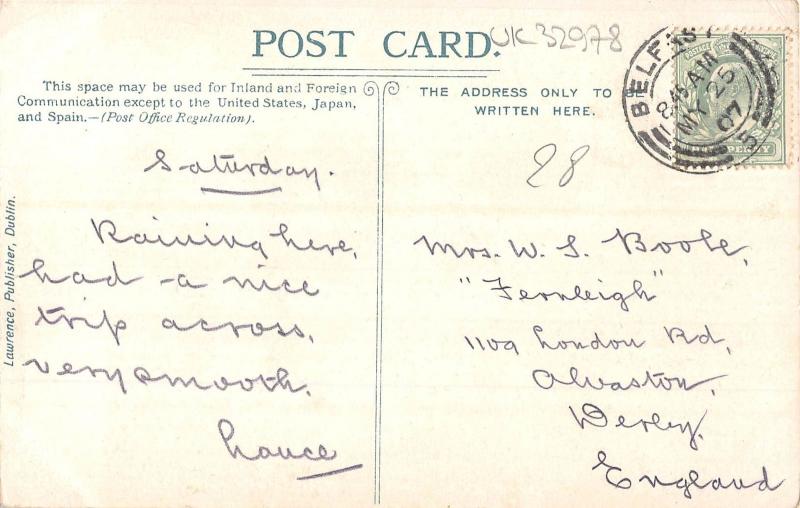 POST CARD.
UK 32978
This space may be used for Inland and Foreign
Communication except to the United States, Japan,
and Spain.—(Post Office Regulation).
THE ADDRESS ONLY TO BE
WRITTEN HERE.
BELFAST
8.45 AM
MY 25
07
28
Saturday.
Raining here,
had a nice
trip across,
very smooth.
Lance
Mrs. W. S. Boole,
"Fernleigh"
1109 London Rd,
Alvaston,
Derby,
England
Lawrence, Publisher, Dublin.